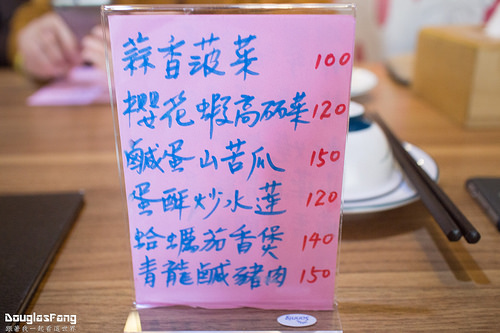 蒜香菠菜 100
櫻花蝦高砳菜 120
鹹蛋山苦瓜 150
蛋酥炒水蓮 120
蛤蠣茄香煲 140
青龍鹹豬肉 150
DouglasFang
跟著我一起看這世界